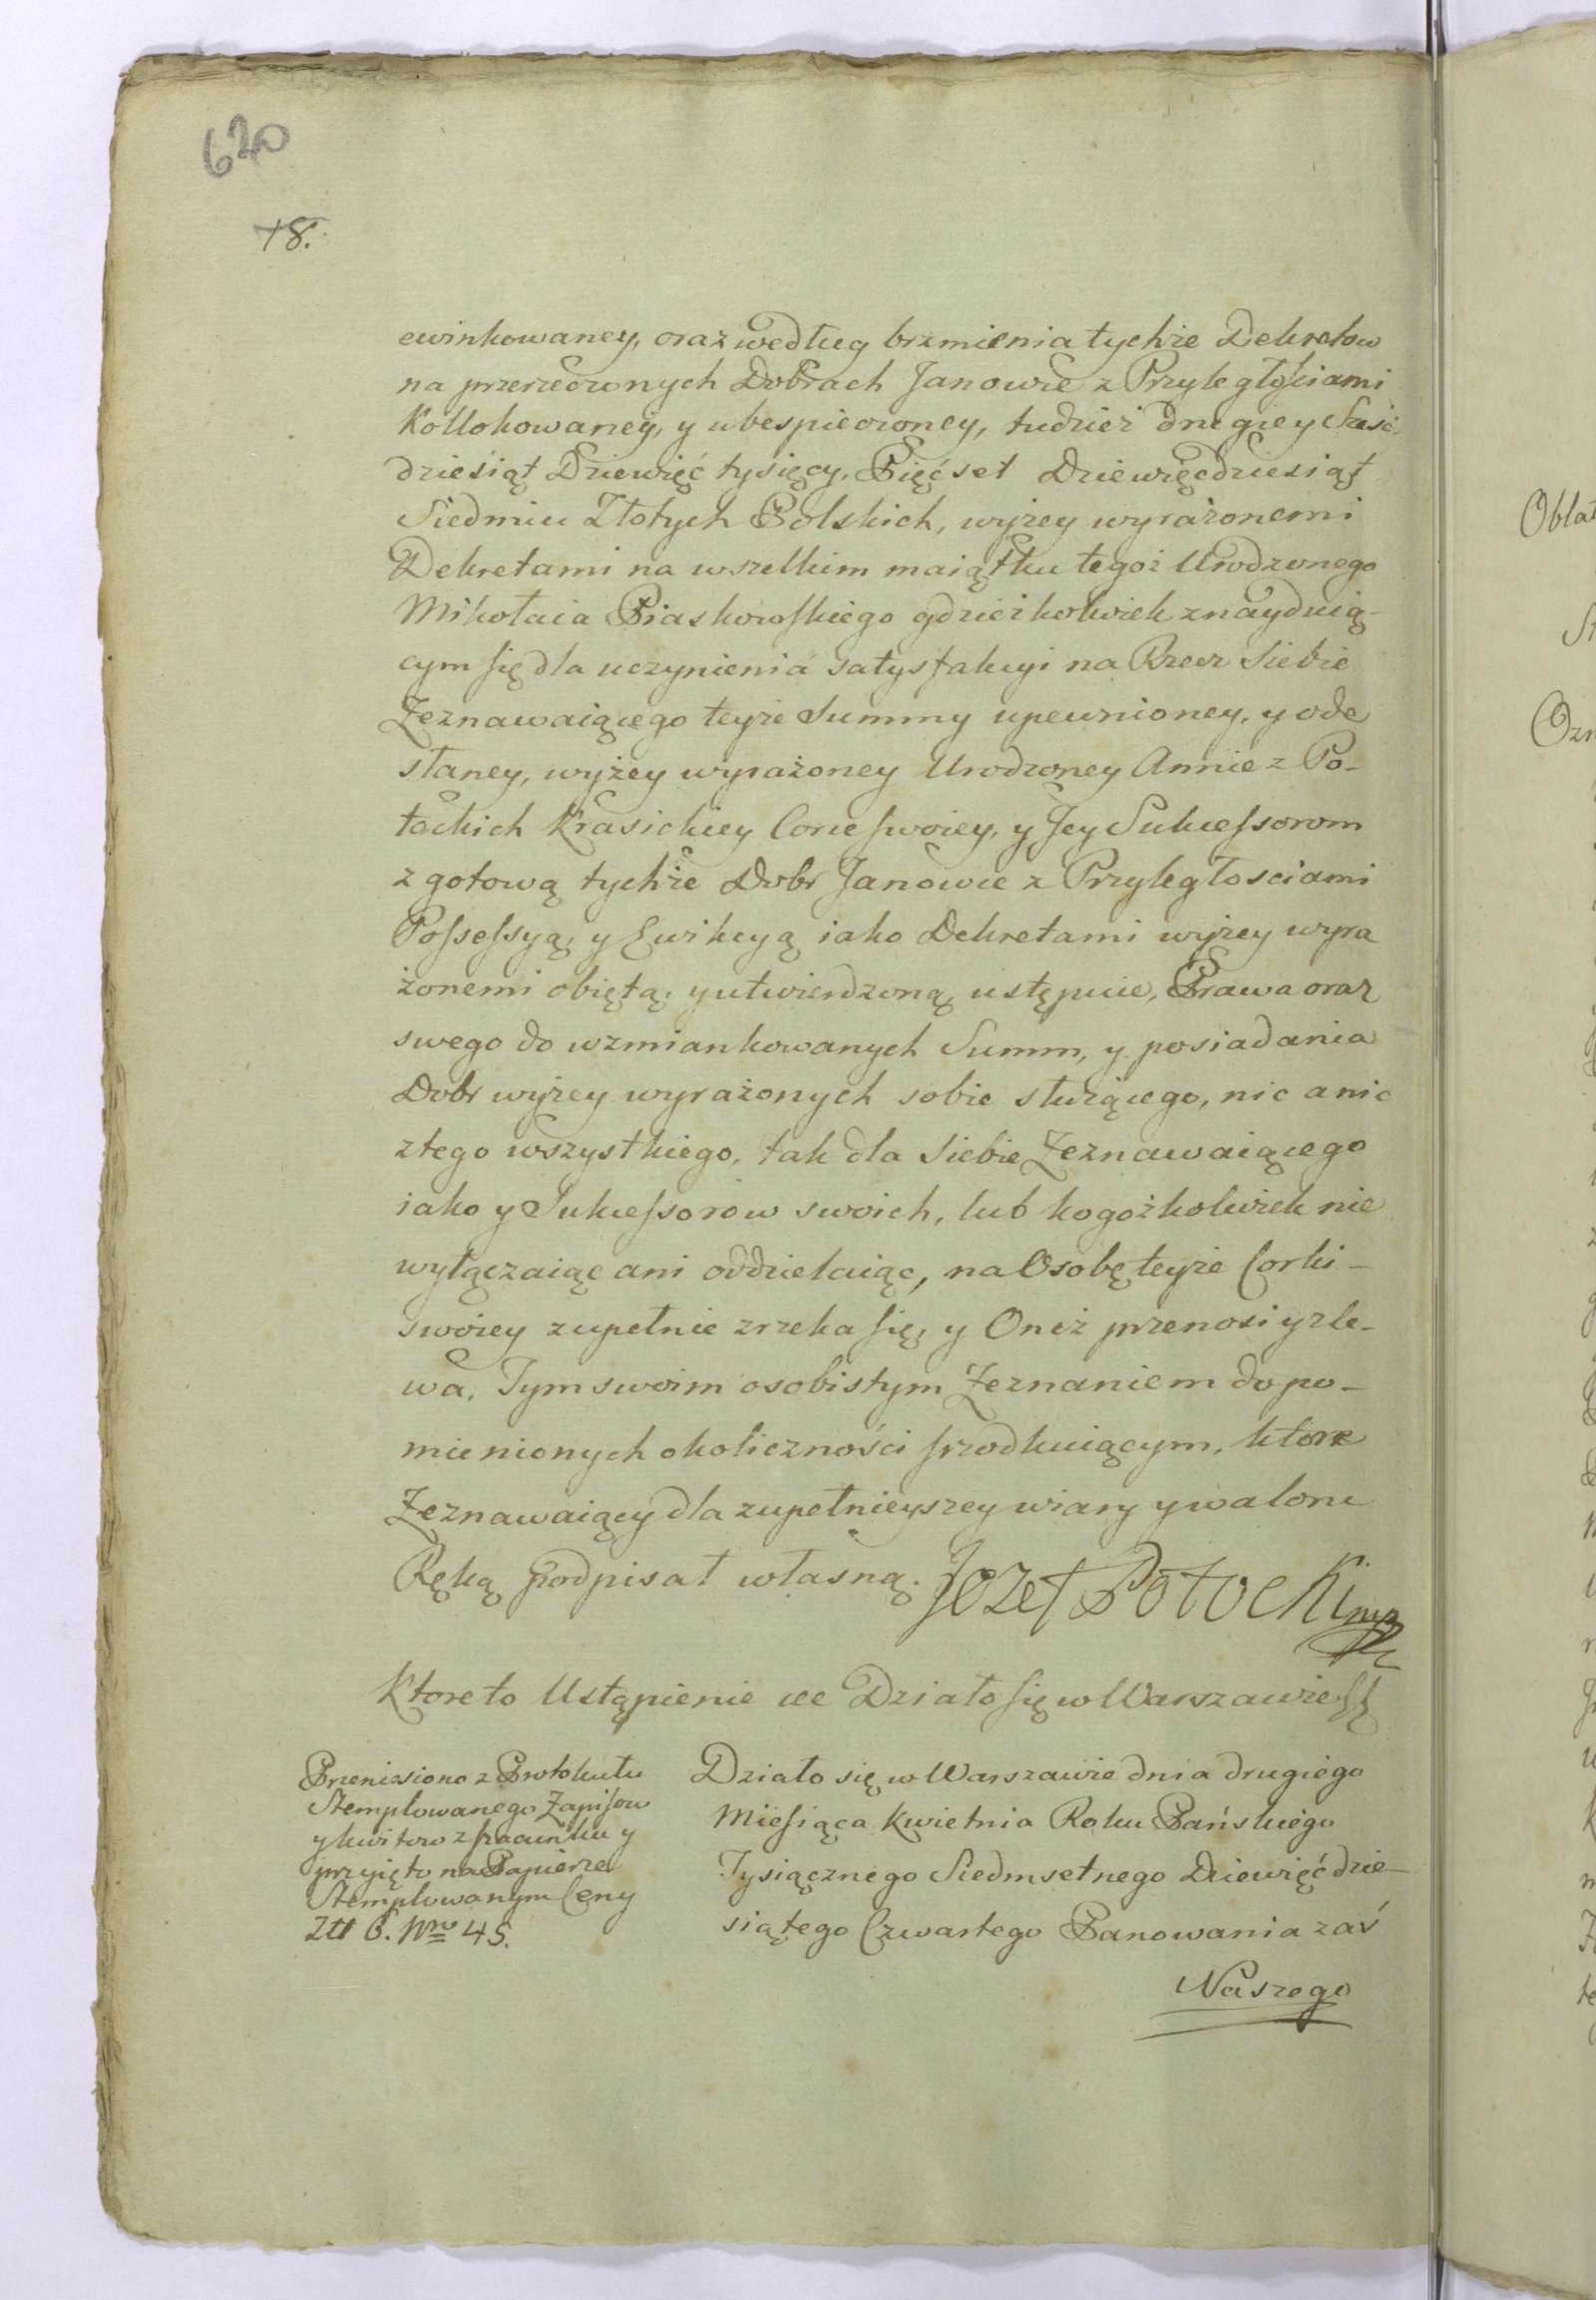 620
78.
ewinkowaney, oraz według brzmienia tychże Dekretow
na przerzeczonych Dobrach Janowie z Przyległościami
Kollokowaney, y ubespieczoney, tudzież drugiey Sześć-
dziesiąt Dziewięć tysięcy, Pięć set Dziewięćdziesiąt
Siedmiu Złotych Polskich, wyżey wyrażonemi
Dekretami na wszelkim maiątku tegoż Urodzonego
Mikołaia Piaskowskiego gdzieżkolwiek znayduią-
cym się dla uczynienia satysfakcyi na Rzecz Siebie
Zeznawaiącego teyże Summy upewnioney, y ode
słaney, wyżey wyrażoney Urodzoney Annie z Po-
tockich Krasickiey Corce swoiey, y Jey Sukcessorom
z gotową tychże Dobr Janowie z Przyległosciami
Possessyą, y Ewikcyą iako Dekretami wyżey wyra
żonemi obiętą, y utwierdzoną, ustępuie, Prawa oraz
swego do wzmiankowanych Summ, y posiadania
Dobr wyżey wyrażonych sobie służącego, nic a nic
z tego wszystkiego, tak dla Siebie Zeznawaiącego
iako y Sukcessorow swoich, lub kogożkolwiek nie
wyłączaiąc ani oddzielaiąc, na Osobę teyże Corki-
swoiey zupełnie zrzeka się, y Oneż przenosi y zle-
wa, Tym swoim osobistym Zeznaniem do po-
mienionych okoliczności srzodkuiącym, ktore
Zeznawaiący dla zupełnieyszey wiary y waloru
Ręką podpisał własną. Jozef Potocki mp
Ktore to Ustąpienie etc Działo się w Warszawie
Przeniesiono z Protokułu
Stemplowanego Zapisow
y kwitow z szacunku y
przyięto na Papierze
Stemplowanym Ceny
Złł 6. Nro 45.
Działo się w Warszawie dnia drugiego
Miesiąca Kwietnia Roku Pańskiego
Tysiącznego Siedmsetnego Dziewięćdzie-
siątego Czwartego Panowania zaś
Naszego